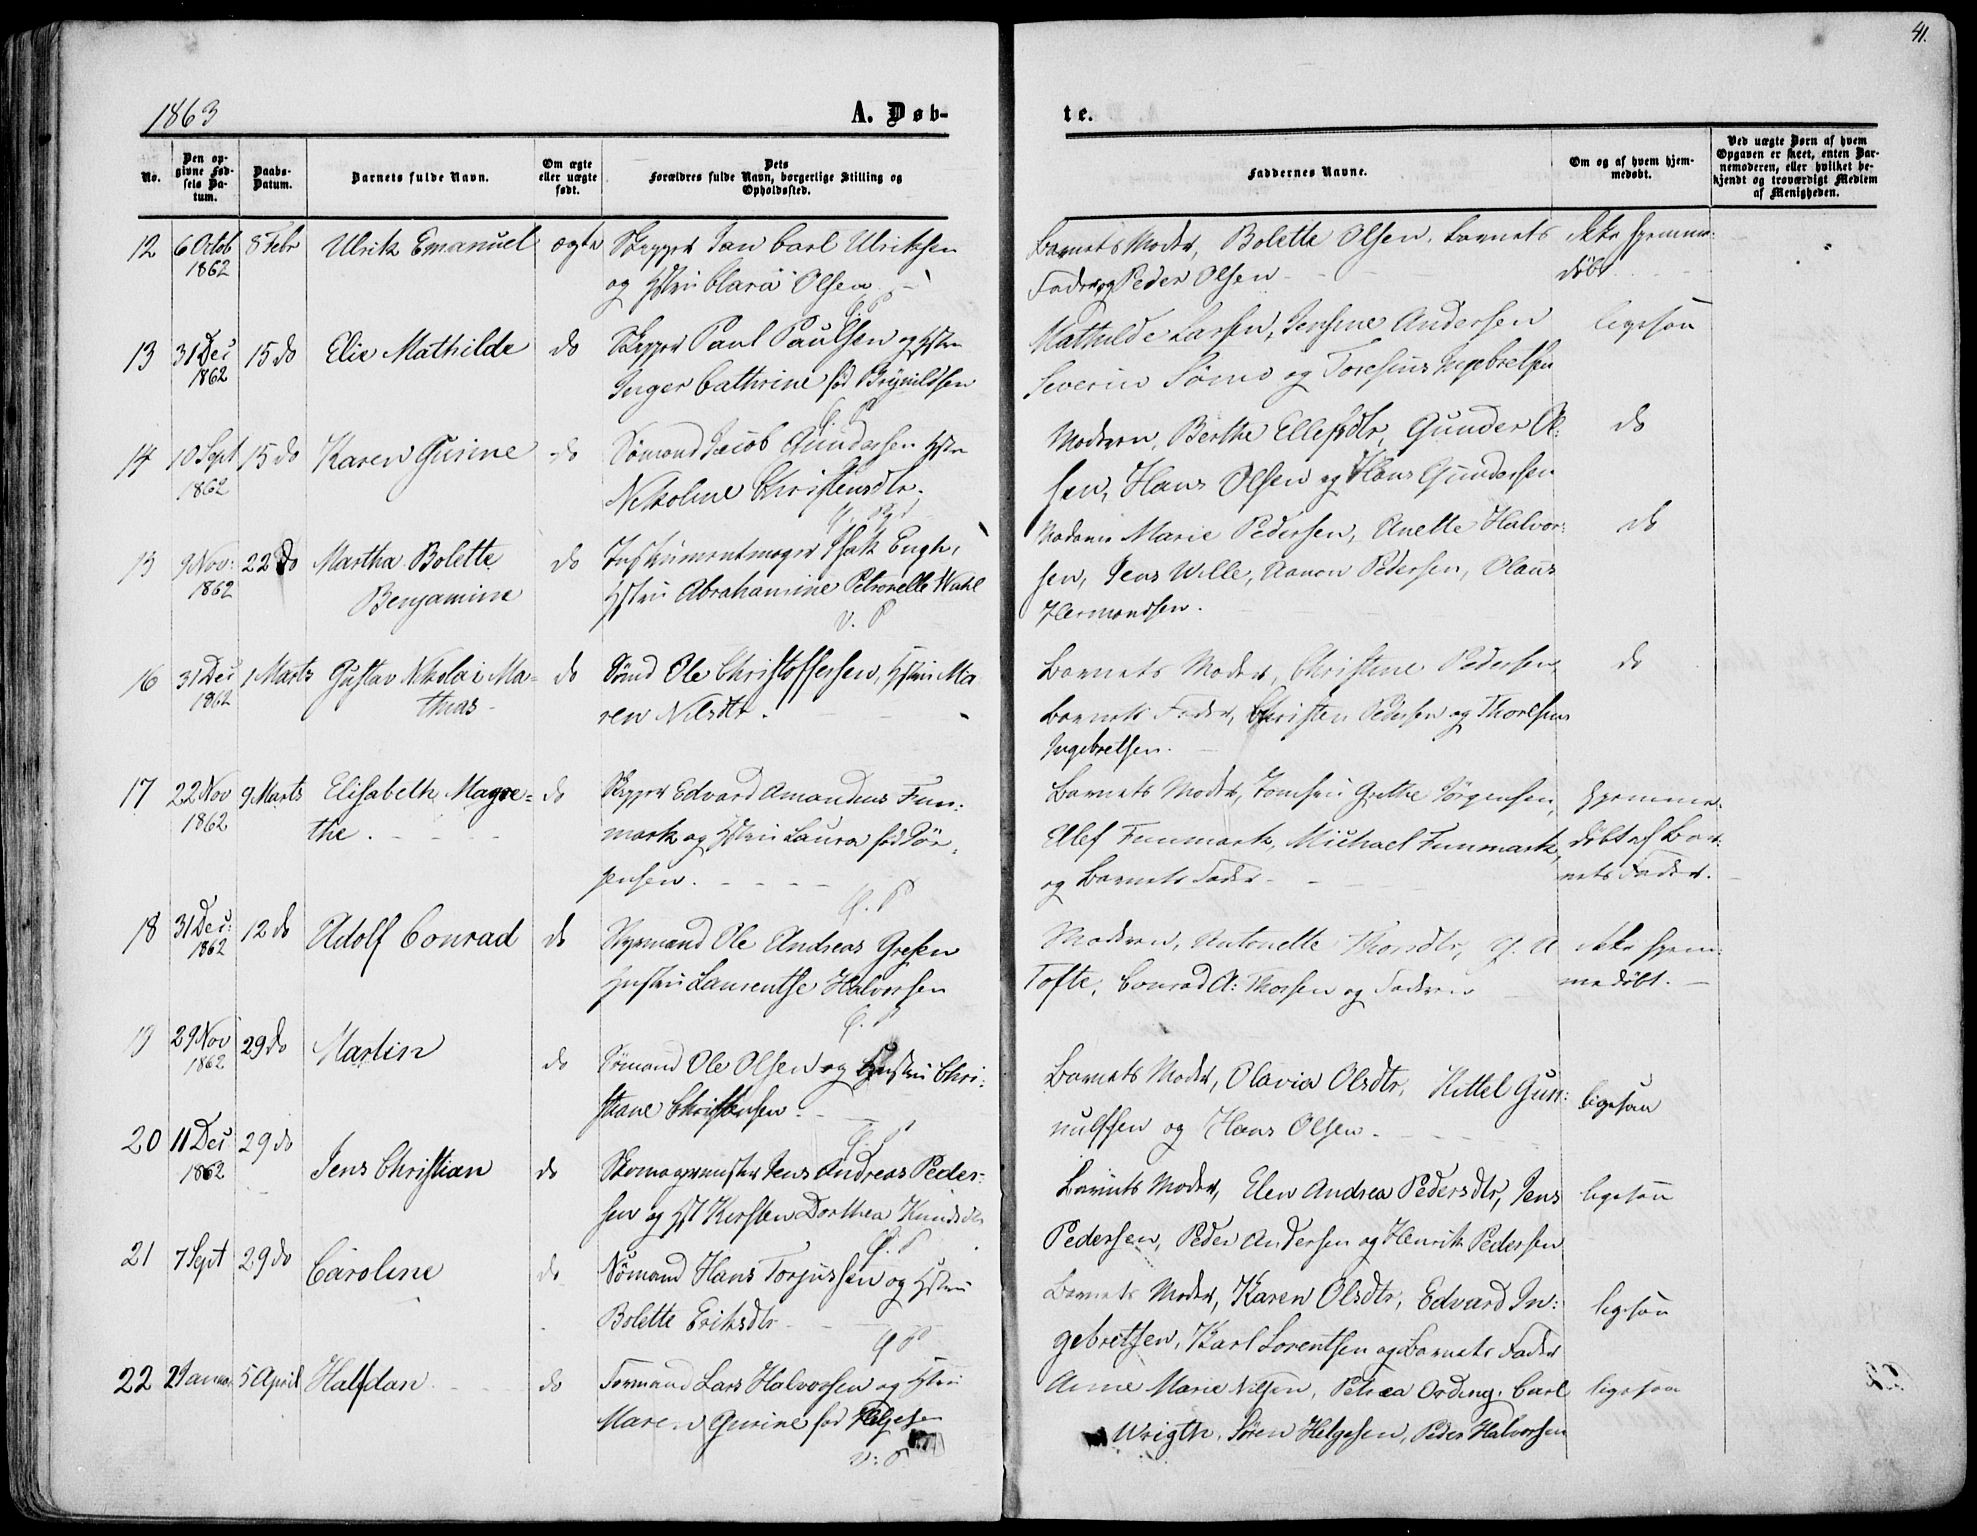 41.
1863
A. Døb-
te.
No.
Den op-
givne Fød-
sels Da-
tum.
Daabs-
Datum.
Barnets fulde Navn.
Om ægte
eller uægte
født.
Dets
Forældres fulde Navn, borgerlige Stilling og
Opholdssted.
Faddernes Navne.
Om og af hvem hjem-
medøbt.
Ved uægte Børn af hvem
Opgaven er skeet, enten Bar-
nemoderen, eller hvilket be-
kjendt og troværdigt Medlem
af Menigheden.
12 6 Octob 8 Febr Ulrik Emanuel ægte Skipper Jan Carl Ulriksen
1862 og Hstru Clara Olsen
Barnets Moder, Bolette Olsen, Barnets ikke hjemme-
Fader og Peder Olsen døbt
13 31 Dec 15 do Elie Mathilde do Skipper Paul Paulsen og Hstru
1862 Inger Cathrine fød Brynildsen
Mathilde Larsen, Jensine Andersen ligesaa
Severin Sømo og Toresius Ingebretsen
14 10 Sept 15 do Karen Gurine do Sømand Jacob Gundersen Hstru
1862 Nikoline Christensdtr.
Moderen, Berthe Ellefsdtr, Gunder Ol- do
sen, Hans Olsen og Hans Gundersen
15 9 Nov: 22 do Martha Bolette do Instrumentmager Isak Engh,
1862 Benjamine Hstru Abrahamine Petronelle Wahl
V. P
Madame Marie Pedersen, Anette Halvor- do
sen, Jens Wille, Aanon Pedersen, Olaus
Hermandsen.
16 31 Dec 1 Marts Gustav Nikolai Ma- do Sømd Ole Christoffersen, Hstru Ma-
1862 thias ren Nilsdtr.
Barnets Moder, Christine Pedersen, do
Barnets Fader, Christen Pedersen og Thoresius
Ingebretsen.
17 22 Nov 9 Marts Elisabeth Magre- do Skipper Edvard Amandius Fun-
1862 the. mark og Hstru Laura fød Jør-
gensen.
Barnets Moder, Jomfru Grethe Jørgensen, hjemme-
Ulef Funmark, Michael Funmark, døbt af Bar-
og Barnets Fader nets Fader.
18 31 Dec: 12 do Adolf Conrad do Styrmand Ole Andreas Gresen
1862 Hustru Laurentse Halvorsen
Moderen, Antonette Thorsdtr, ikke hjem-
Tofte, Conrad A: Thorsen og Faderen medøbt.
19 29 Nov 29 do Martin do Sømand Ole Olsen og Hustru Chri-
1862 stiane Christensen.
Barnets Moder, Olavia Olsdtr, Kittel Gun- ligesaa
nulfsen og Hans Olsen.
20 11 Dec 29 do Jens Christian do Skomagermester Jens Andreas Peder-
1862 sen og Hst Kirsten Dorthea Knudsdtr
Barnets Moder, Elen Andrea Pedersdtr, Jens ligesaa
Pedersen, Peder Andersen og Henrik Pedersen
21 7 Sept 29 do Caroline do Sømand Hans Torjussen og Hstru
Bolette Eriksdtr
Barnets Moder, Karen Olsdtr, Edvard In- ligesaa
gebretsen, Karl Lorentsen og Barnets Fader
22 2 Januar 5 April Halfdan do Formand Lars Halvorsen og Hstru
Maren Gurine fød Helgesen
V: P.
Anne Marie Nilsen, Petrea Ording, Carl ligesaa
Wrigth, Søren Helgesen, Peder Halvorsen